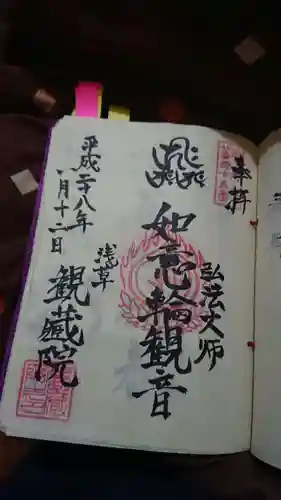 奉拝
弘法大师
如意輪観音
浅草
観蔵院
平成二十八年
一月十二日